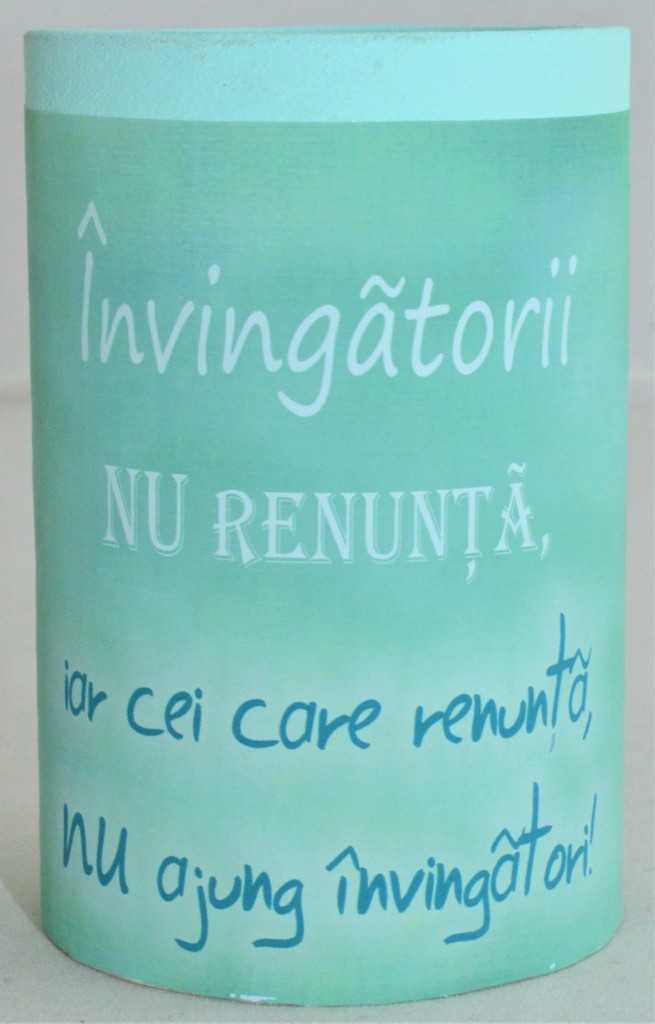 Învingãtorii
NU RENUNȚÃ,
iar cei care renunțã,
nu ajung învingãtori!